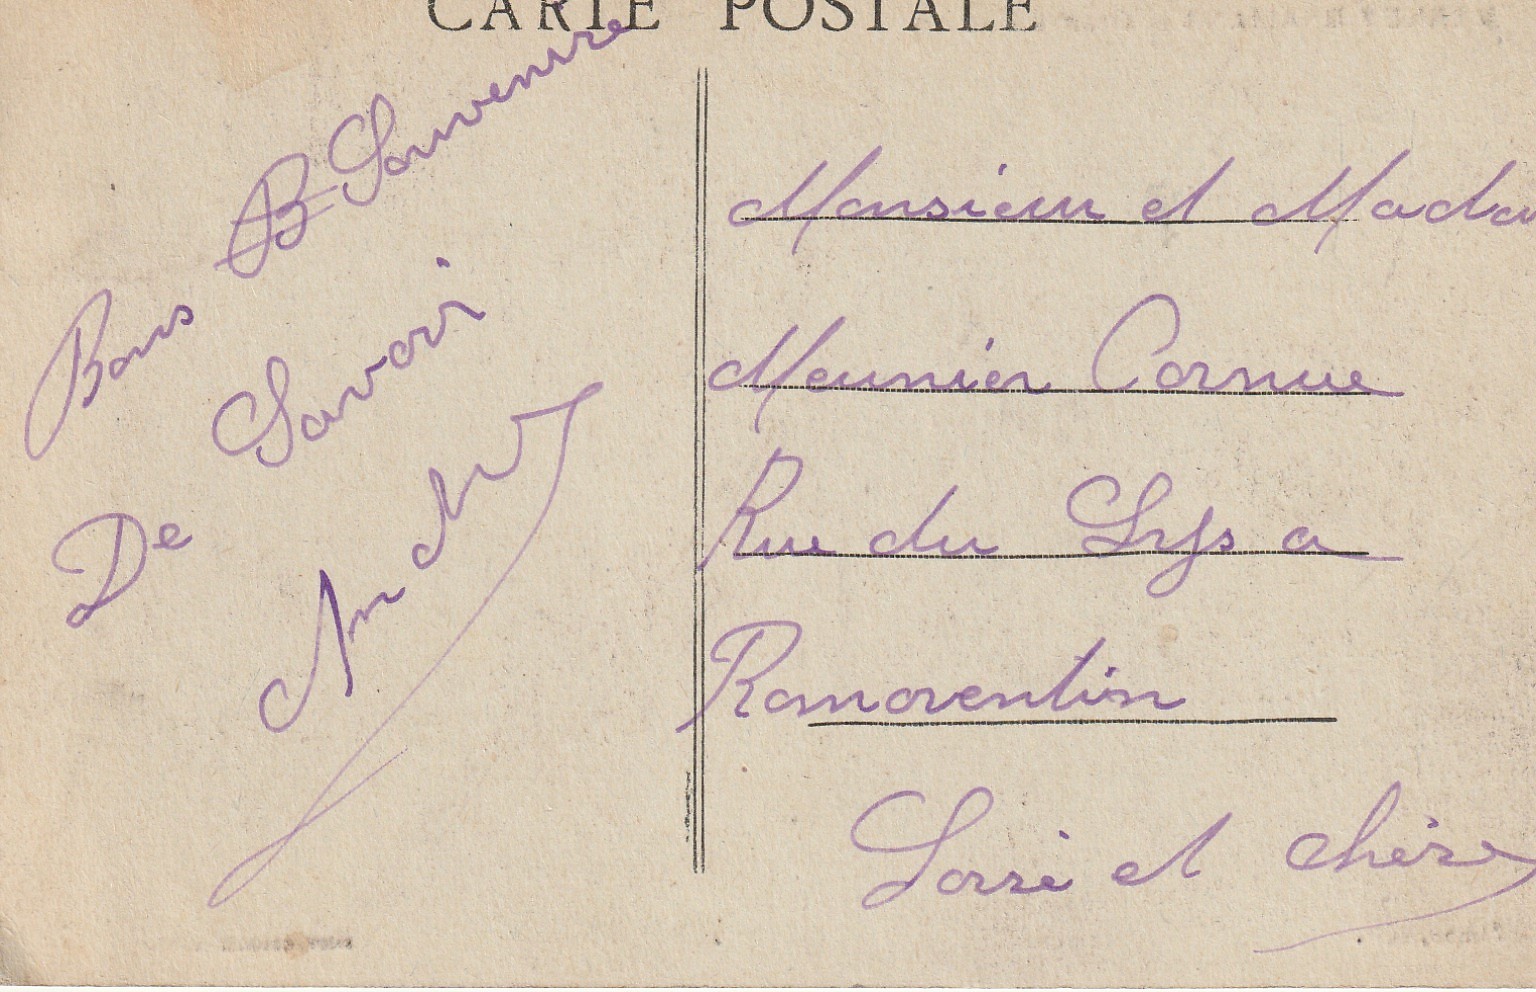 CARTE POSTALE
Bons B Souvenire
De Savori
André
Monsieur et Mada
Meunier Cornue
Rue du Lys a
Romorentin
Lorre et chère